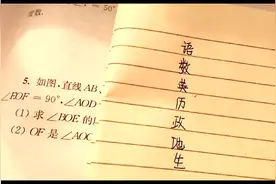 5. 如图,直线 AB、
∠EOF = 90°,∠AOD
(1) 求 ∠BOE 的
(2) OF 是 ∠AOC
语
数
英
历
政
地
生